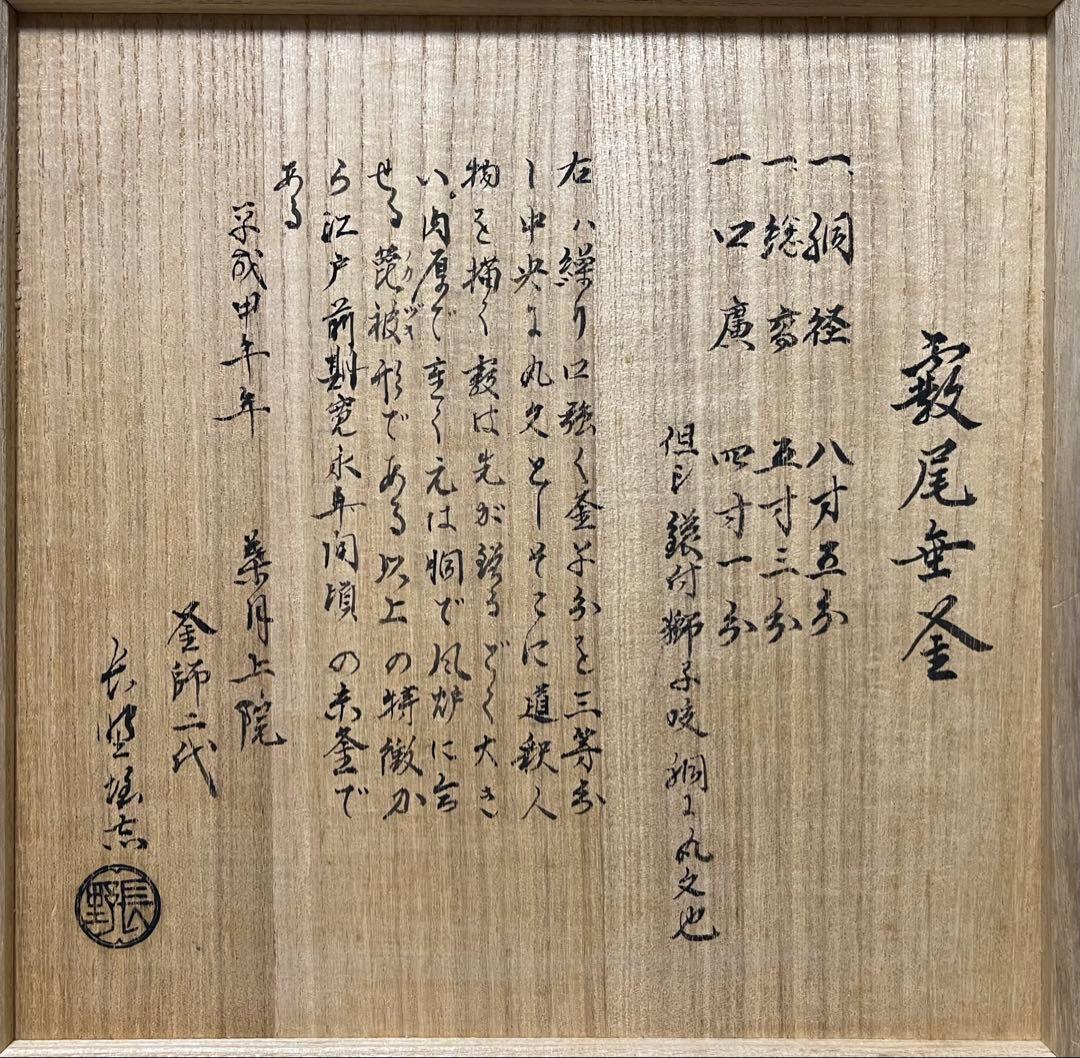 霰尾垂釜
一、胴径 八寸五分
一、総高 五寸三分
一 口廣 四寸一分
但し鐶付獅子咬胴に丸文也
右ハ繰り口強く釜半分を三等分
し中央に丸文としそこに道釈人
物を描く霰は先が鋭るどく大き
い。肉厚で重く元は胴で風炉に合
せる箆被形である以上の特徴か
ら江戸前期寛永年間頃の京釜で
ある
平成甲午年 葉月上院
釜師二代
長野垤志
長野